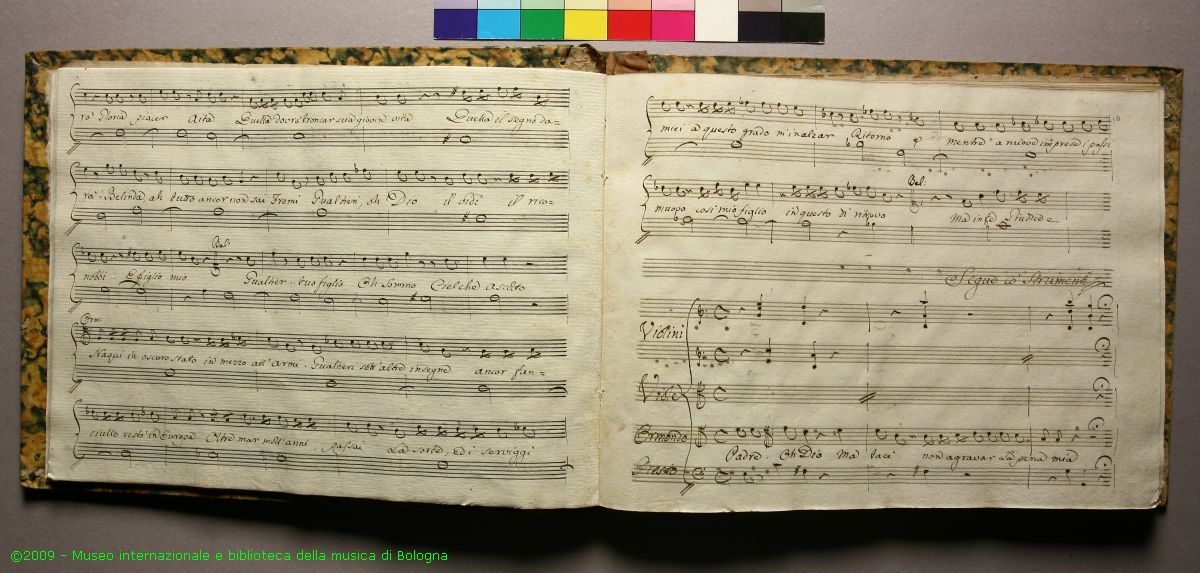 rò Gloria piacer Aita Quella dovrò troncar sua giovin vita Quella il segno da=
rà: Belinda ah tutto ancor non sai Fremi Gualtier, oh Dio il vidi il rico=
nobbi.. E figlio mio Bel: Gualtier.. tuo figlio Oh sommo Ciel che ascolto
Orm:
Naqui in oscuro stato in mezzo all'armi. Gualtieri sott'altre insegne ancor fan=
ciullo restò in Europa Oltre mar molt'anni Passai La sorte, Ed i serviggi
10
miei a questo grado m'inalzar Ritorno è mentre a nuove imprese i passi
muovo così mio figlio in questo dì ritrovo Bel: Ma infe
Segue co' Strumenti
Violini
Viole
Ormondo
Padre. Oh Dio Ma taci non agravar la pena mia
©2009 - Museo internazionale e biblioteca della musica di Bologna